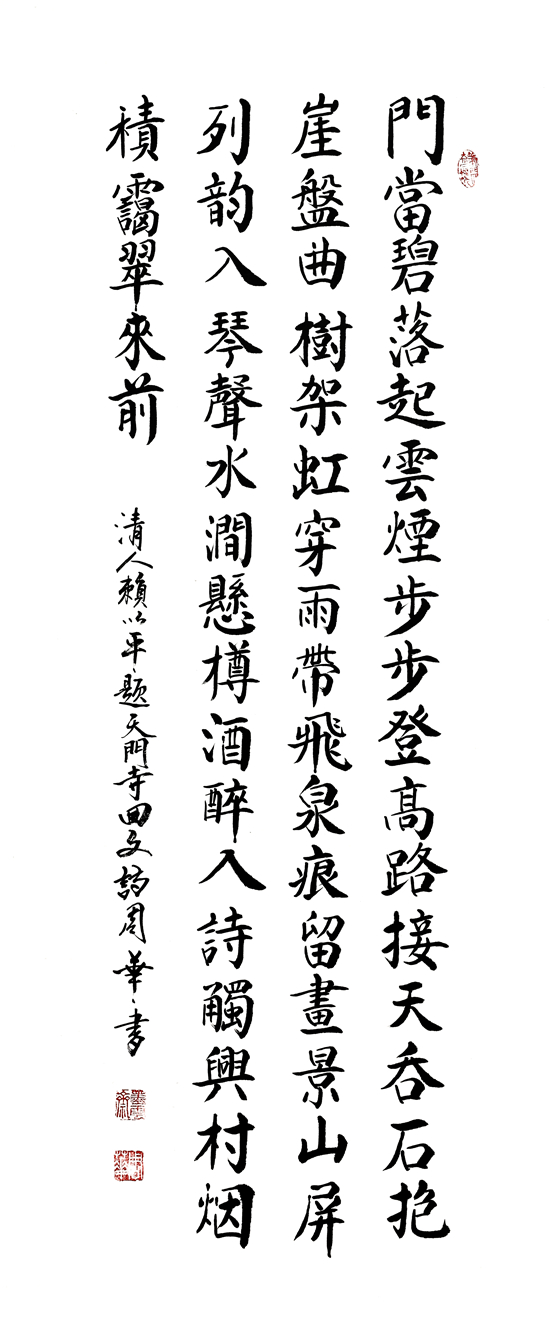 門當碧落起雲煙步步登高路接天吞石抱
崖盤曲樹架虹穿雨帶飛泉痕留畫景山屏
列韵入琴聲水澗懸樽酒醉入詩觸興村烟
積靄翠來前
清人賴以平題天門寺回文詩周華書